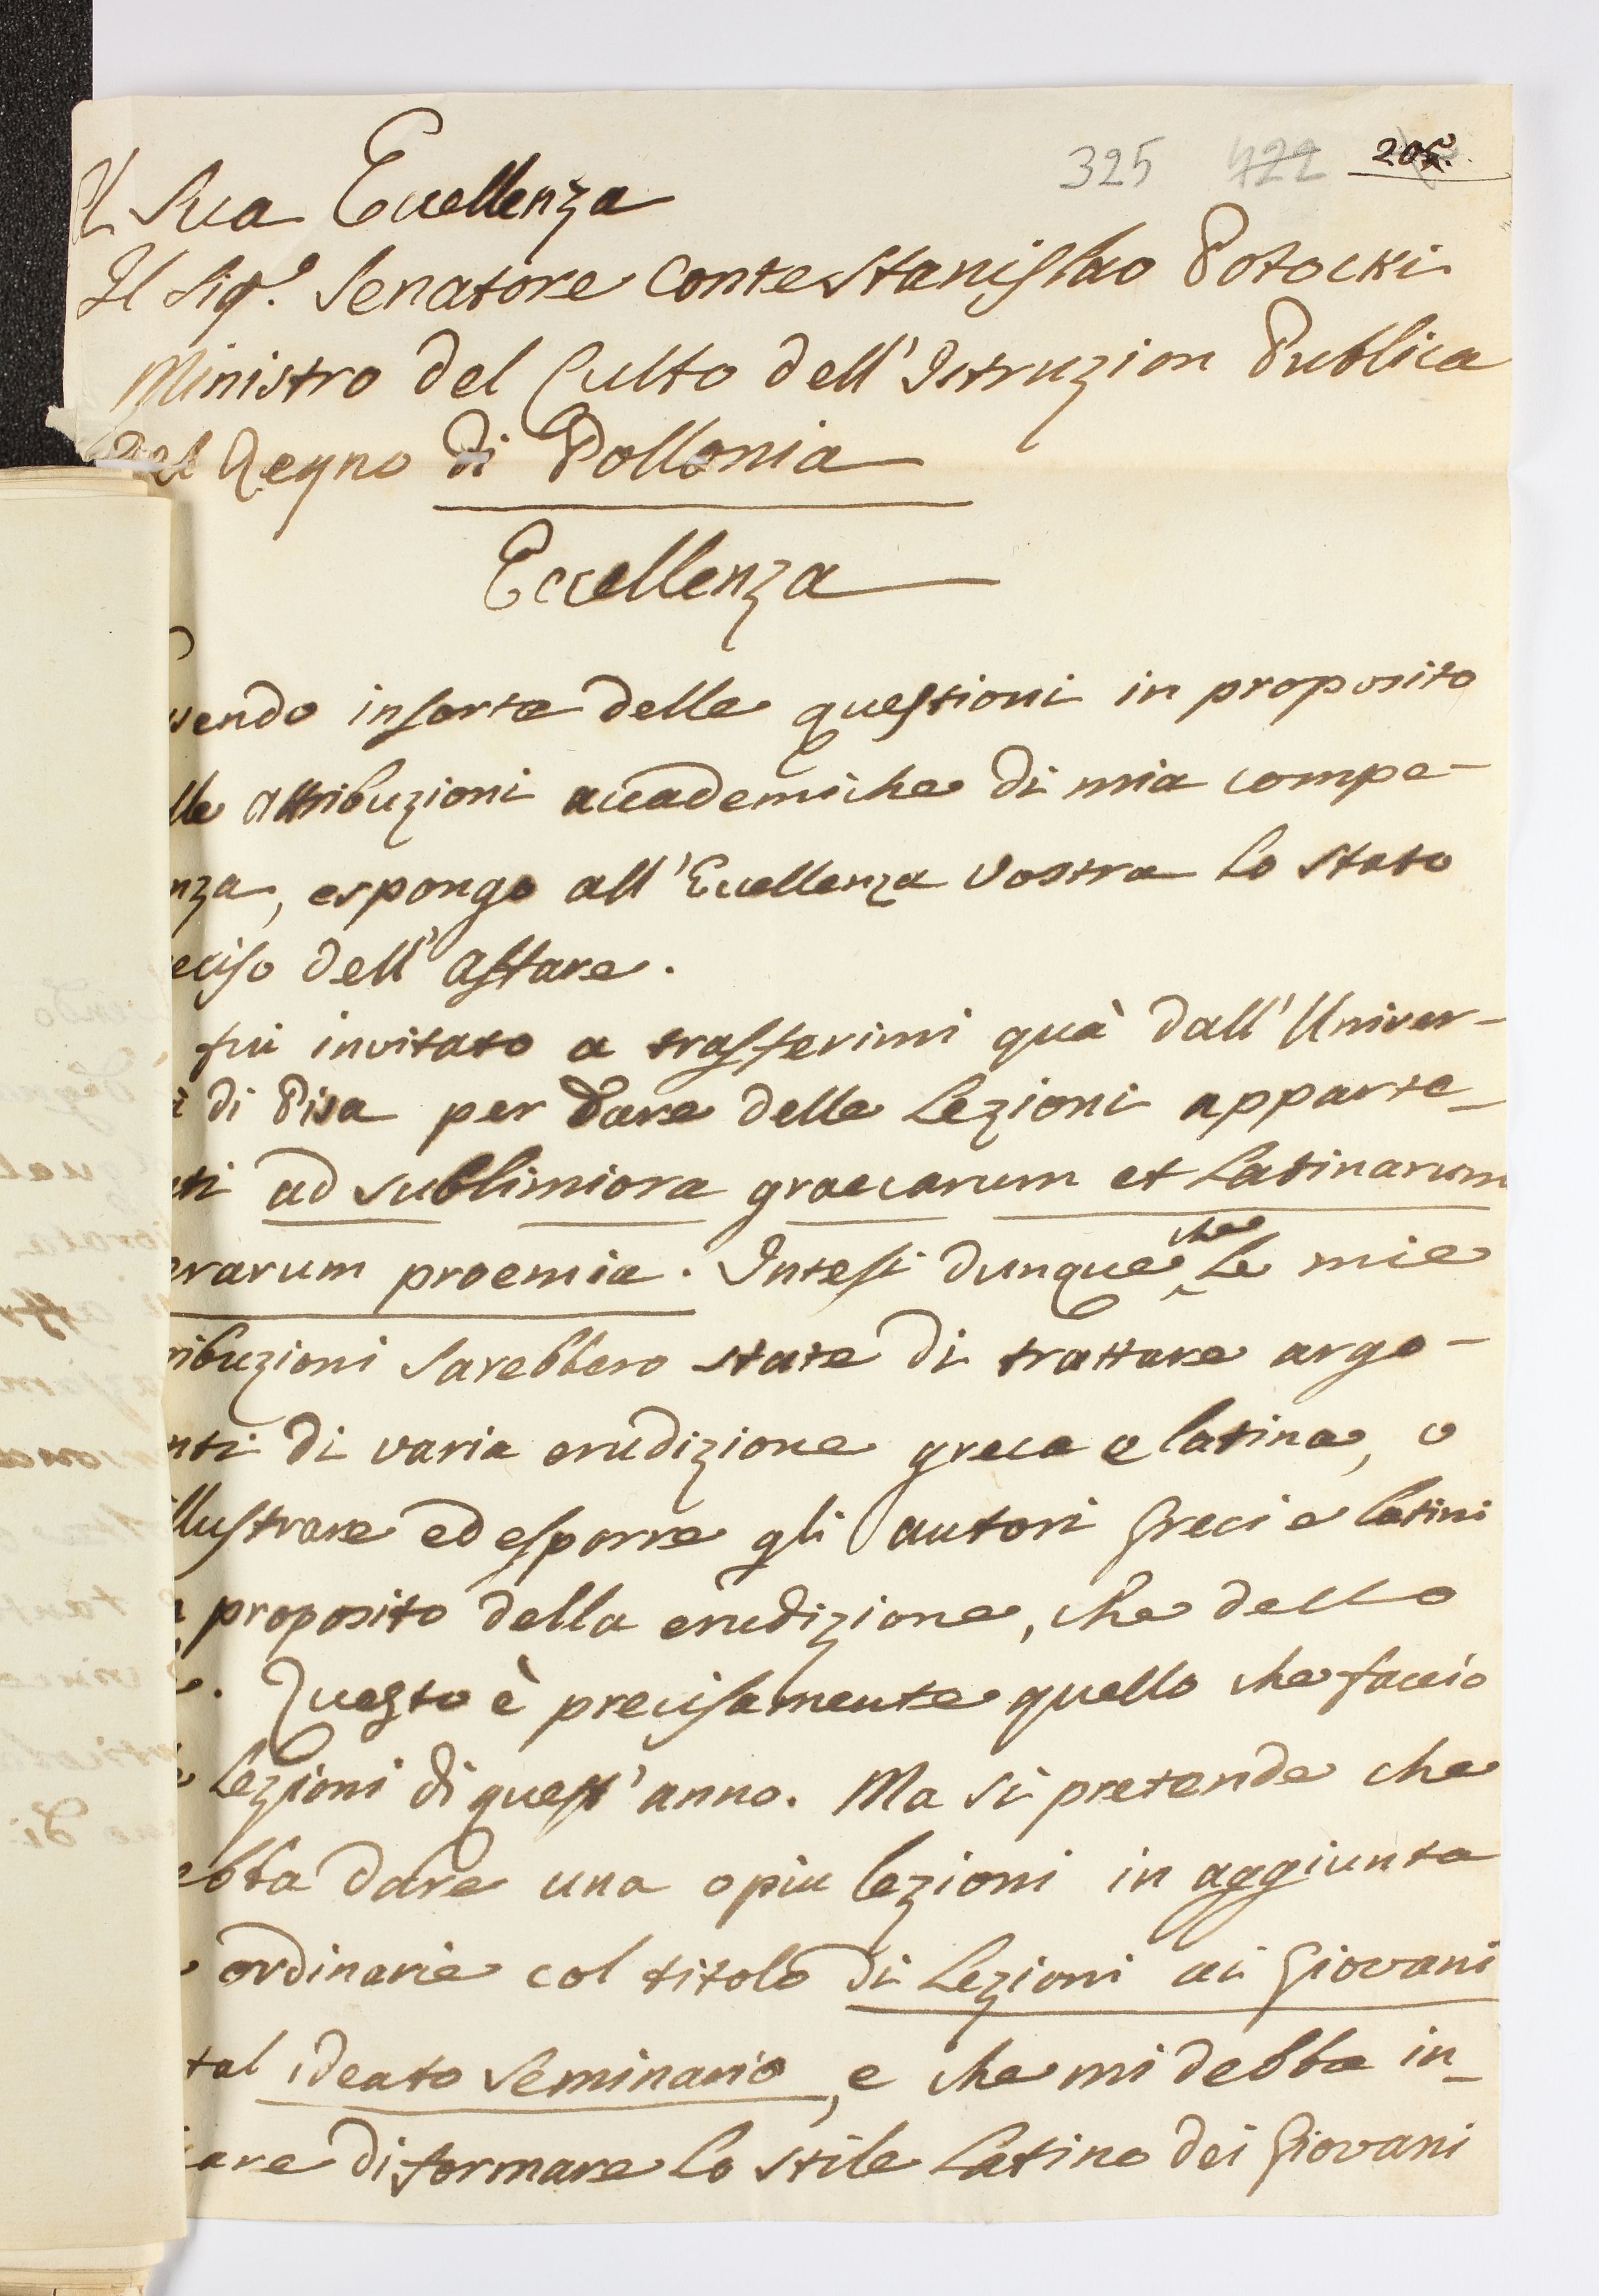 325 422 205.
A Sua Eccellenza
Il Sig.e Senatore Conte Stanislao Potocki
Ministro del Culto dell'Istruzion Publica
Del Regno di Pollonia
Eccellenza
sendo insorte delle questioni in proposito
lle attribuzioni accademiche di mia compe-
nza, espongo all'Eccellenza Vostra lo stato
eciso dell'affare.
fui invitato a trasferirmi quà dall'Univer-
à di Pisa per dare delle Lezioni apparte-
nti ad sublimiora graecarum et Latinarum
erarum proemia. Intesi dunque che le mie
ribuzioni sarebbero state di trattare argo-
nti di varia erudizione greca e latina, o
illustrare ed esporre gli autori Greci e latini
a proposito della erudizione, che dello
e. Questo è precisamente quello che faccio
e Lezioni di quest'anno. Ma si pretende che
ebba dare una o piu lezioni in aggiunta
e ordinarie col titolo di Lezioni ai Giovani
tal ideato Seminario, e che mi debba in-
care di formare lo stile Latino dei Giovani